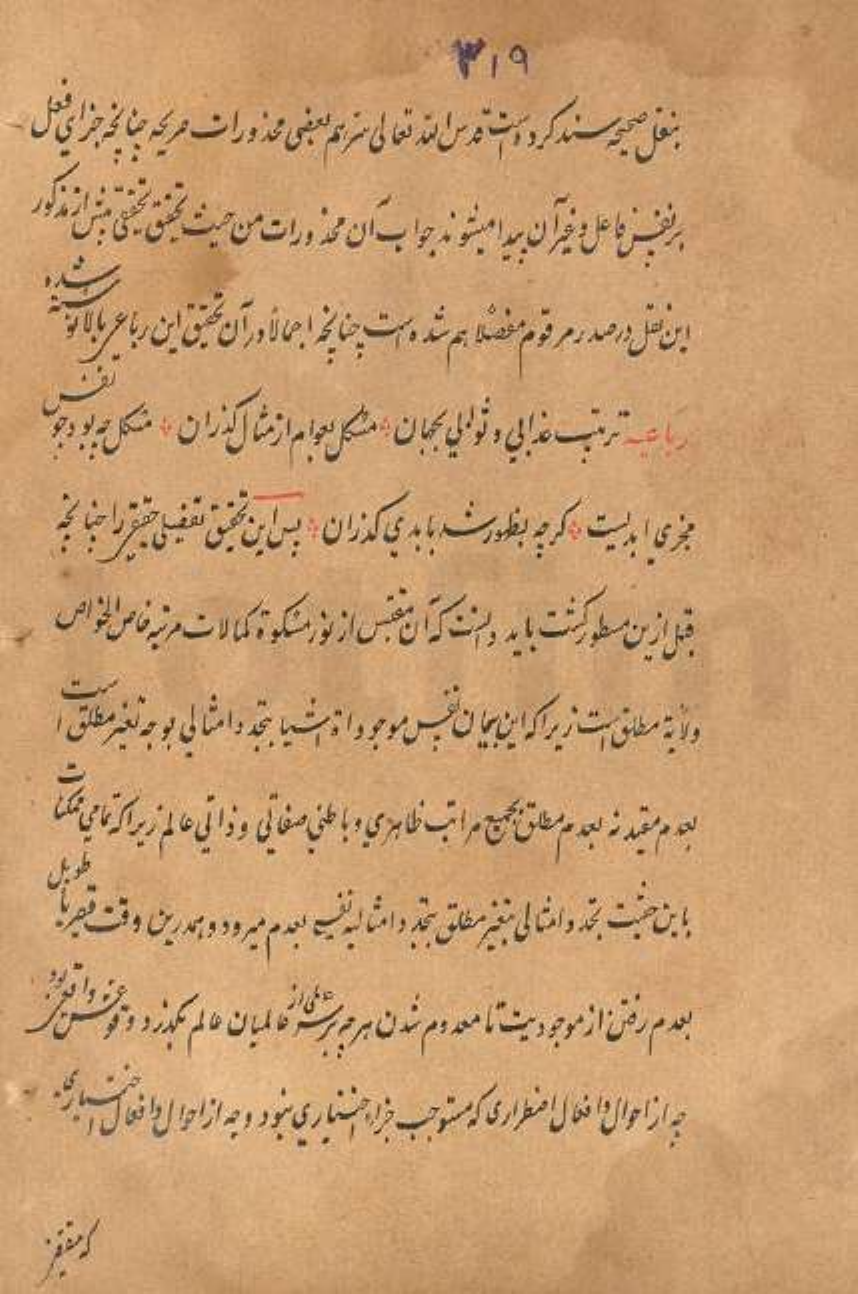 ٣١٩
بنقل صحیحه سند کرده است قدس الله تعالی سره هم بعضی محذورات صریحه چنانچه جزای فعل
بر نفس فاعل و غیر آن پیدا میشوند جواب آن محذورات من حیث تحقیق تحقیقی پیش از مذکور
این نقل در صدر مرقوم مفصلا هم شده است چنانچه اجمالا در آن تحقیق این رباعی بالا نوشته شده
رباعیه ترتیب عذابی و ثوابی بجهان مشکل بعوام از مثال گذران مشکل چه بود چو نفس
مجزی ابدیست گرچه بظهور شد بابدی گذران پس این تحقیق تفصیلی حقیقی را چنانچه
قبل ازین مسطور گشت باید دانست که آن مقتبس از نور مشکوة کمالات مرتبه خاص الخواص
ولایة مطلق است زیرا که این بیجان نفس موجوداة اشیا بتجدد امثالی بوجه تغیر مطلق است
بعدم مقید نه بعدم مطلق بجمیع مراتب ظاهری و باطنی صفاتی و ذاتی عالم زیرا که تمامی ممکنات
باین حیثیت تجدد امثالی بتغیر مطلق بتجدد امثالیه نفس بعدم میرود و همدرین وقت قصیر یا طویل
بعدم رفتن از موجودیت تا معدوم شدن هر چه بر سر عالمیان عالم بگذرد وقوعش واقعی بود
چه از احوال و افعال اضطراری که مستوجب جزاء اختیاری نبود و چه از احوال و افعال اختیاری
که مفتقر